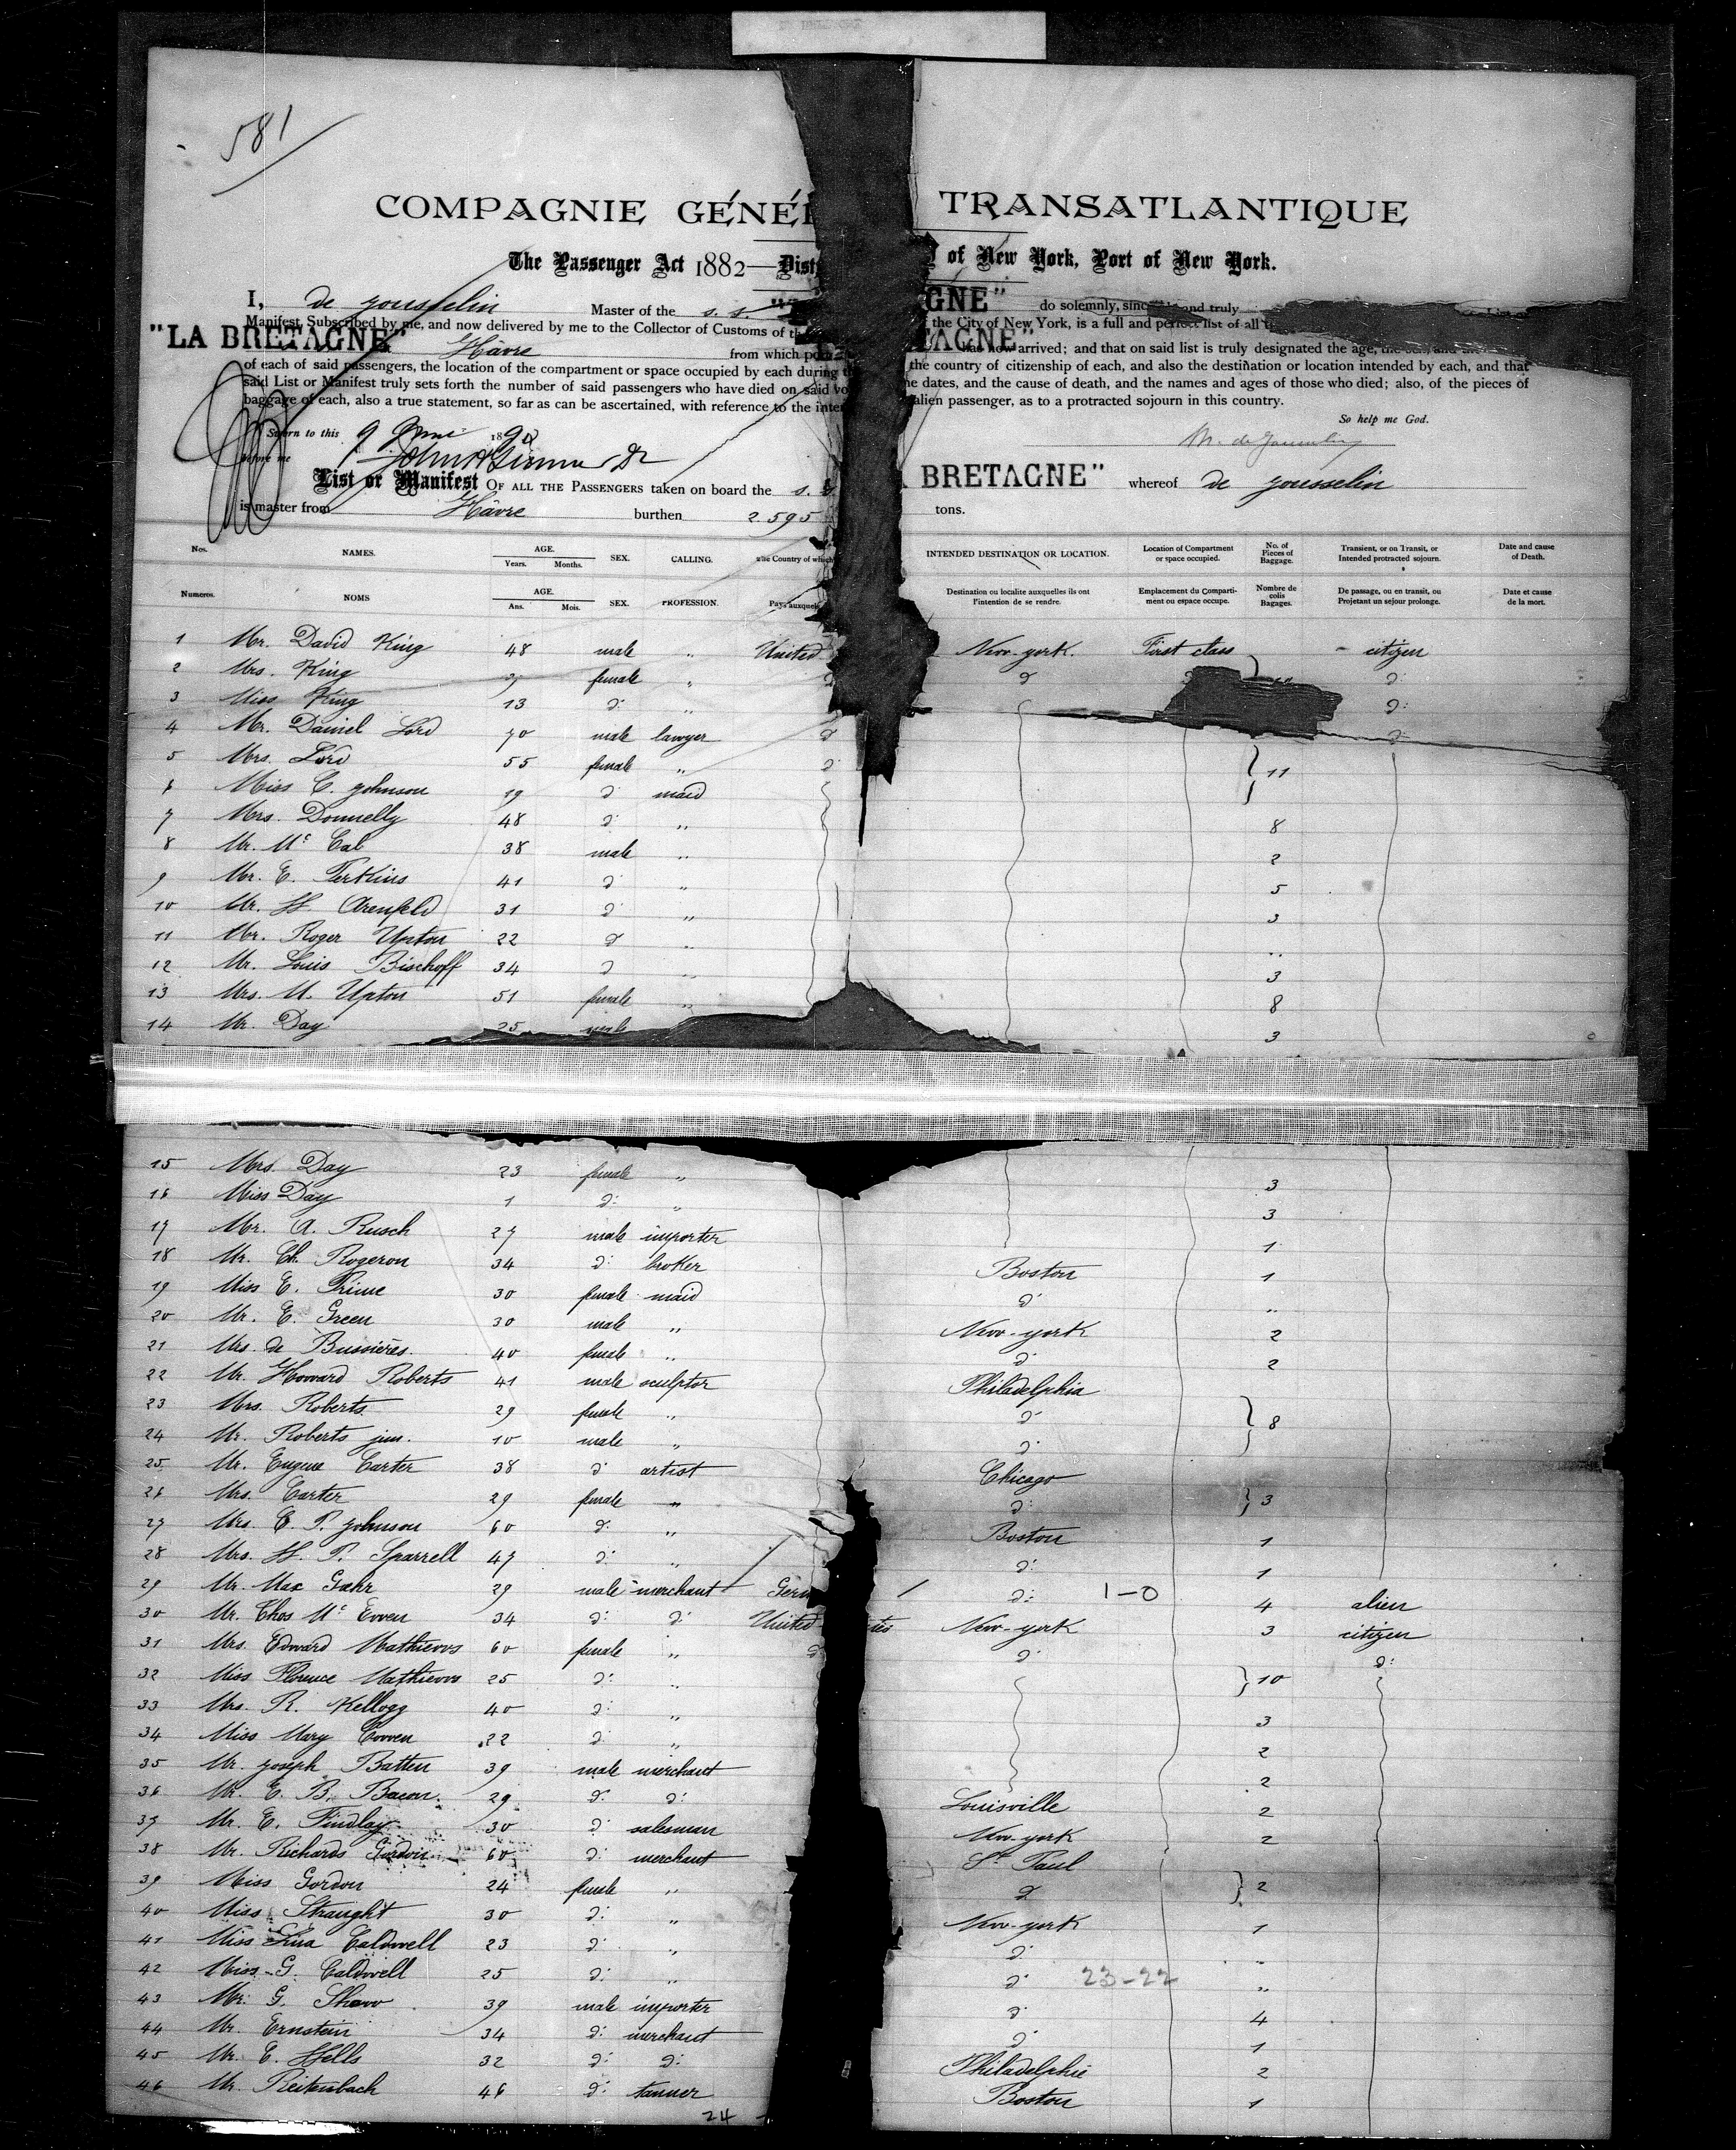 581
COMPAGNIE GÉNÉ TRANSATLANTIQUE
The Passenger Act 1882— Dist of New York, Port of New York.
I, de gousselin Master of the s. s. GNE" do solemnly, and truly
Manifest Subscribed by me, and now delivered by me to the Collector of Customs of the City of New York, is a full and perfect list of all
"LA BRETAGNE" Hâvre from which TAGNE" has now arrived; and that on said list is truly designated the age,
of each of said passengers, the location of the compartment or space occupied by each during the country of citizenship of each, and also the destination or location intended by each, and that
said List or Manifest truly sets forth the number of said passengers who have died on said dates, and the cause of death, and the names and ages of those who died; also, of the pieces of
baggage of each, also a true statement, so far as can be ascertained, with reference to the alien passenger, as to a protracted sojourn in this country.
So help me God.
Sworn to this 9 189
before me
List or Manifest OF ALL THE PASSENGERS taken on board the s. s. BRETAGNE" whereof de gousselin
is master from Hâvre burthen 2595 tons.
Nos. NAMES. AGE. Years. Months. SEX. CALLING. The Country of which INTENDED DESTINATION OR LOCATION. Location of Compartment or space occupied. No. of Pieces of Baggage. Transient, or on Transit, or Intended protracted sojourn. Date and cause of Death.
Numeros. NOMS AGE. Ans. Mois. SEX. PROFESSION. Pays auxquel Destination ou localite auxquelles ils ont l'intention de se rendre. Emplacement du Compartiment ou espace occupe. Nombre de colis Bagages. De passage, ou en transit, ou Projetant un sejour prolonge. Date et cause de la mort.
1 Mr. David King 48 male " United New-york. First class citizen
2 Mrs. King female " d d d:
3 Miss King 13 d: " d:
4 Mr. Daniel Lord 70 male lawyer d d
5 Mrs. Lord 55 female " d 11
6 Miss C. Johnson 19 d maid
7 Mrs. Donnelly 48 d: " 8
8 Mr. Mc Cal 38 male " 2
9 Mr. E. Perkins 41 d " 5
10 Mr. H Arenfeld 31 d " 3
11 Mr. Roger Upton 22 d " "
12 Mr. Louis Bischoff 34 d " 3
13 Mrs. M. Upton 51 female " 8
14 Mr. Day 25 male 3
15 Mrs. Day 23 female " 3
16 Miss Day 1 d: " 3
17 Mr. A. Rusch 27 male importer 1
18 Mr. Ch. Rogeron 34 d: broker Boston 1
19 Miss E. Prime 30 female maid d: "
20 Mr. E. Green 30 male " New-york 2
21 Mrs. de Bussières. 40 female " d 2
22 Mr. Howard Roberts 41 male sculptor Philadelphia
23 Mrs. Roberts 29 female " d: 8
24 Mr. Roberts jun. 10 male " d:
25 Mr. Eugene Carter 38 d artist Chicago
26 Mrs. Carter 29 female " d: 3
27 Mrs. E. P. Johnson 60 d: " Boston 1
28 Mrs. H. P. Sparrell 47 d: " d: 1
29 Mr. Max Gahr 29 male merchant Ger d: 1-0 4 alien
30 Mr. Thos Mc Ewen 34 d: d: United tes New-york 3 citizen
31 Mrs. Edward Mathiews 60 female " d d: d:
32 Miss Florence Mathiews 25 d: " 10
33 Mrs. R. Kellogg 40 d: " 3
34 Miss Mary Cowen 22 d: " 2
35 Mr. Joseph Batten 39 male merchant 2
36 Mr. E. B. Bacon. 29 d: d: Louisville 2
37 Mr. E. Findlay 30 d salesman New-york 2
38 Mr. Richards Gordon 60 d: merchant St Paul
39 Miss Gordon 24 female " d 2
40 Miss Straight 30 d: " New-york 1
41 Miss Lina Caldwell 23 d: " d: "
42 Miss G. Caldwell 25 d: " d: 23-22 "
43 Mr. G. Shaw 39 male importer d: 4
44 Mr. Ernstein 34 d: merchant d: 1
45 Mr. E. Hells 32 d: d: Philadelphie 2
46 Mr. Reitenbach 46 d: tanner Boston 1
24